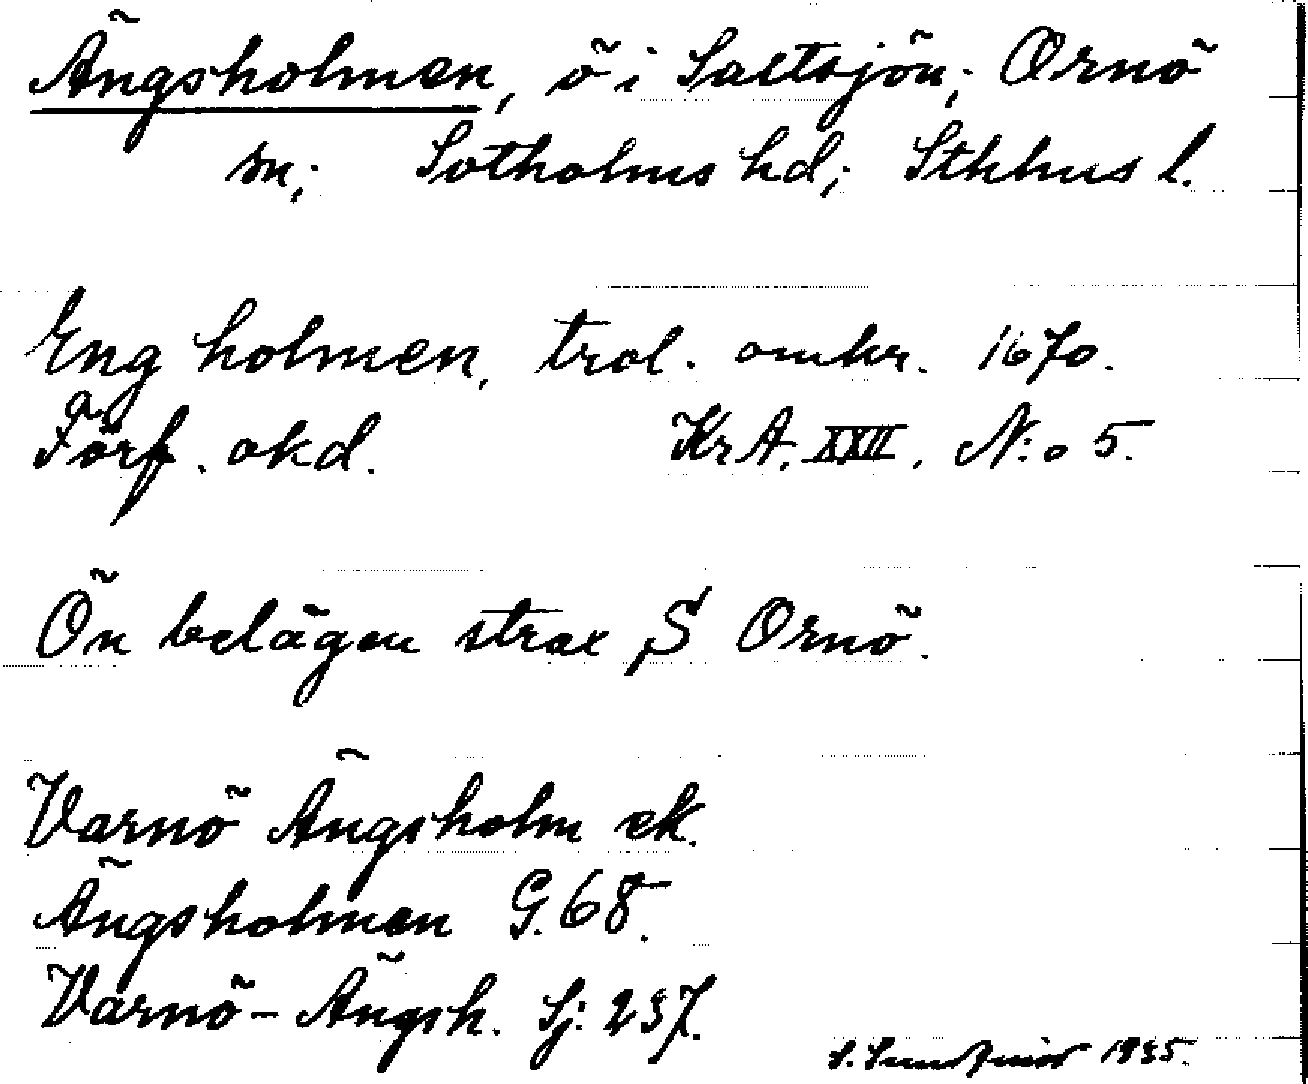 Ängsholmen, ö i Saltsjön; Ornö
sn; Sotholms hd; Sthlms l.
Engholmen, trol. omkr. 1670.
Förf. okd. KrA. XXII. N:o 5.
Ön belägen strax S Ornö.
Varnö Ängsholm ek.
Ängsholmen G. 68.
Varnö-Ängsh. Sj: 237.
1935.